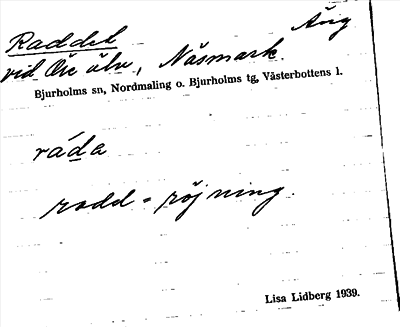 Raddet Äng
vid Öre älv, Näsmark.
Bjurholms sn, Nordmaling o. Bjurholms tg, Västerbottens l.
ráda
rodd = röjning.
Lisa Lidberg 1939.